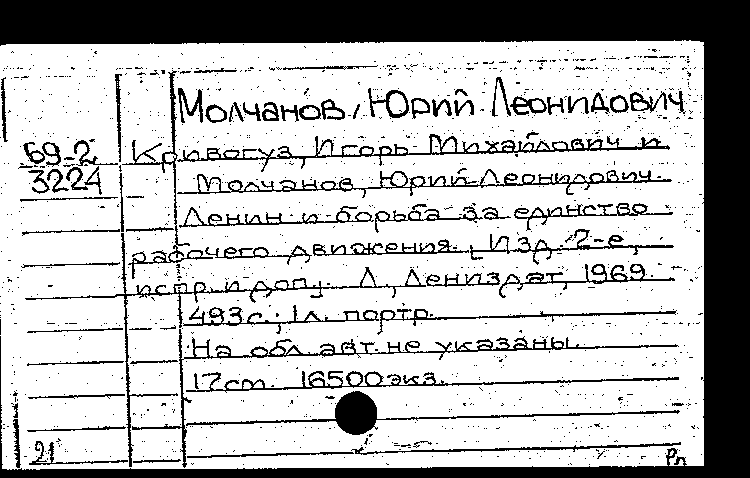 Молчанов, Юрий Леонидович
69-2 Кривогуз, Игорь Михайлович и
3224 Молчанов, Юрий Леонидович.
Ленин и борьба за единство
рабочего движения. [Изд. 2-е,
испр. и доп.]. Л., Лениздат, 1969.
493 с.; 1 л. портр.
На обл. авт. не указаны.
17 см. 16500 экз.
21 Рп